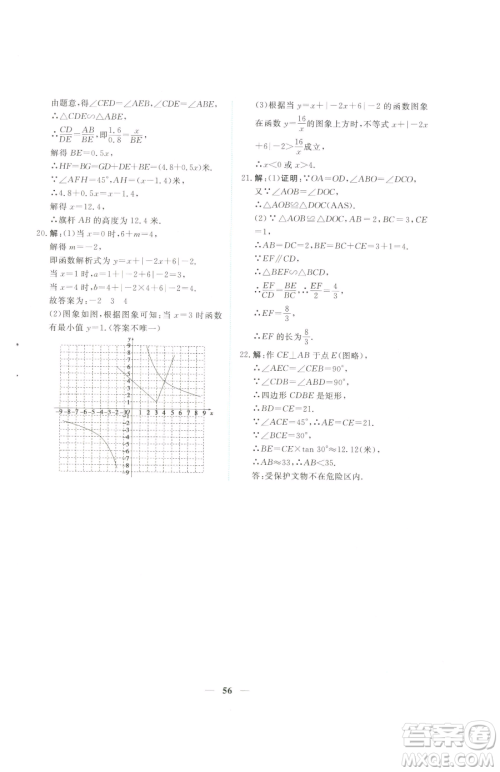 由题意，得∠CED=∠AEB，∠CDE=∠ABE，
∴△CDE∽△ABE，
∴CD/DE=AB/BE，即1.6/0.8=x/BE，
解得 BE=0.5x，
∴HF=BG=GD+DE+BE=(4.8+0.5x)米，
∵∠AFH=45°，AH=(x-1.6)米，
∴4.8+0.5x=x-1.6，
解得 x=12.4，
∴旗杆 AB 的高度为 12.4 米.
20.解:(1)当 x=0 时，6+m=4，
解得 m=-2，
即函数解析式为 y=x+|-2x+6|-2，
当 x=1 时，a=1+|-2+6|-2=3，
当 x=4 时，b=4+|-2×4+6|-2=4，
故答案为:-2 3 4
(2)图象如图，根据图象可知:当 x=3 时函数
有最小值 y=1.(答案不唯一)
(3)根据当 y=x+|-2x+6|-2 的函数图象
在函数 y=16/x 的图象上方时，不等式 x+|-2x
+6|-2>16/x 成立，
∴x<0 或 x>4.
21.解:(1)证明:∵OA=OD，∠ABO=∠DCO，
又∵∠AOB=∠DOC，
∴△AOB≌△DOC(AAS).
(2)∵△AOB≌△DOC，AB=2，BC=3，
∴AB=DC=2，BC=3，CE=1，
∴BE=BC+CE=4，
∵EF∥CD，
∴△BEF∽△BCD，
∴EF/CD=BE/BC，∴EF/2=4/3，
∴EF=8/3，
∴EF 的长为8/3.
22.解:作 CE⊥AB 于点 E(图略)，
∴∠AEC=∠CEB=90°，
∵∠CDB=∠DBE=90°，
∴四边形 CDBE 是矩形，
∵∠ACE=45°，∠AEC=90°，
∴CE=AE=BD=21 米，
∴BE=CE×tan 30°≈12.12(米)，
∴AB≈33，∴AB<35，
答:受保护文物不在危险区内.
56
答案圈
MXQE.COM